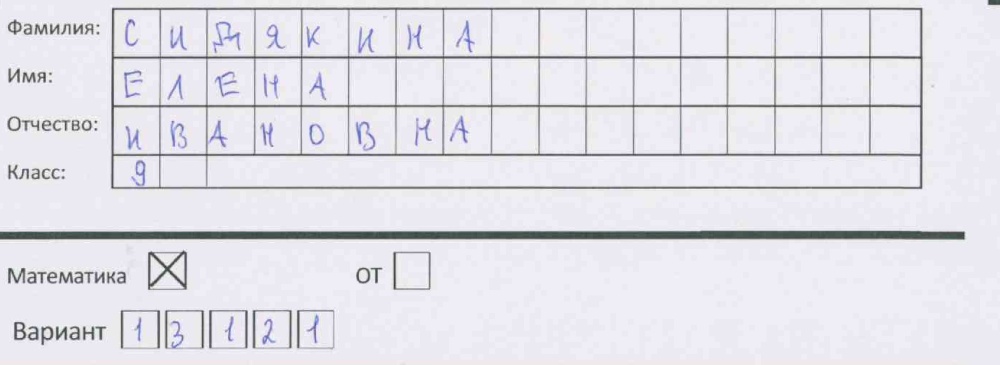 Фамилия: СИДЯКИНА
Имя: ЕЛЕНА
Отчество: ИВАНОВНА
Класс: 9
Математика ОТ
Вариант 13121